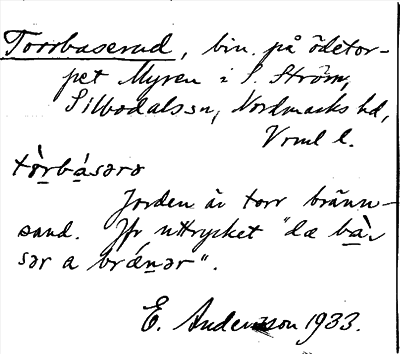 Torrbaserud, bin. på ödetor-
pet Myren i S. Ström,
Silbodals sn, Nordmarks hd,
Vrml l.
tòrbásərə
Jorden är torr bränn-
sand. Jfr uttrycket "dæ bà-
sər a brǽnər".
E. Andersson 1933.